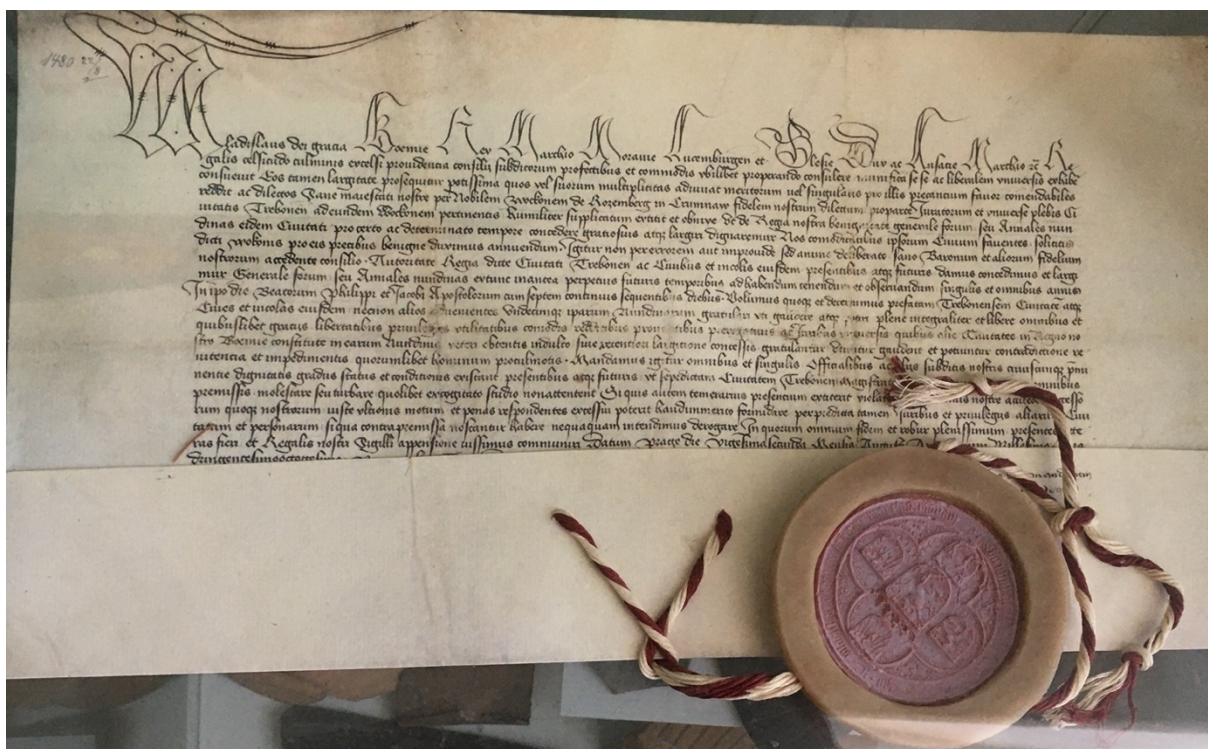 1480 22/8
Wladislaus dei gracia Boemie Rex Marchio Moravie Lucemburgen et Slesie Dux ac Lusacie Marchio etc Re
galis celsitudo culminis excelsi providencia consilii subditorum profectibus et commodis ubilibet properando consulere munifica se se ac liberalem universis exhibe
consuevit Eos tamen largitate prosequitur potissima quos vel suorum multiplicitas adiuvat meritorum vel singularis pro illis precancium favor comendabiles
reddit ac dilectos Sane maiestati nostre per Nobilem Wockonem de Rozemberg in Crumnaw fidelem nostrum dilectum proparte Juratorum et universe plebis Ci
vitatis Trebonen ad eundem Wockonem pertinentis humiliter supplicatum extitit et obnixe ut de Regia nostra generale forum seu Annales nun
dinas eidem Civitati pro certo ac determinato tempore concedere graciosius atque largiri dignaremur Nos comoditatibus ipsorum Civium faventes solicitis
dicti Wokonis pro eis precibus benigne duximus annuendum Igitur non per errorem aut improvide sed animo deliberato sano Baronum et aliorum fidelium
nostrorum accedente consilio Autoritate Regia dicte Civitati Trebonen ac Civibus et incolis eiusdem presentibus atque futuris damus concedimus et largi
mur Generale forum seu Annales nundinas extunc inantea perpetuis futuris temporibus ad habendum tenendum et observandum singulis et omnibus annis
In ipo die Beatorum Philippi et Jacobi Apostolorum cum septem continuis sequentibus diebus Volumus quoque et decernimus prefatam Trebonensem Civitatem atque
Cives et incolas eiusdem necnon alios advenientes undecunque iparum Nundinarum gratulari uti gaudere atque plene integraliter et libere omnibus et
quibuslibet graciis libertatibus privilegiis utilitatibus comodis universis quibus alie Civitates in Regno no
stro Boemie constitute in earum Nundinis vetere obtentis indulto sive recentiori largitione concessis gratulantur utuntur gaudent et potiuntur contradictione re
nitencia et impedimentis quorumlibet hominum procul motis Mandamus igitur omnibus et singulis Officialibus ac subditis nostris cuiuscunque pmi
nentie dignitatis gradus status et conditionis existant presentibus atque futuris ut sepedictam Civitatem Trebonen omnibus
premissis molestare seu turbare quolibet excogitato studio non attentent Si quis autem temerarius presentium extiterit nostre
rum quoque nostrorum iuste ultionis motum et penas respondentes excessui poterit haud immerito formidare per predicta tamen iuribus et privilegiis aliarum Civi
tatum et personarum si qua contra premissa noscantur habere nequaquam intendimus derogare In quorum omnium fidem et robur plenissimum presentes
ras fieri et Regalis nostri Sigilli appensione iussimus communiri Datum Prage die Vigesimasecunda Mensis Augusti Millesimo
dringentesimooctuagesimo